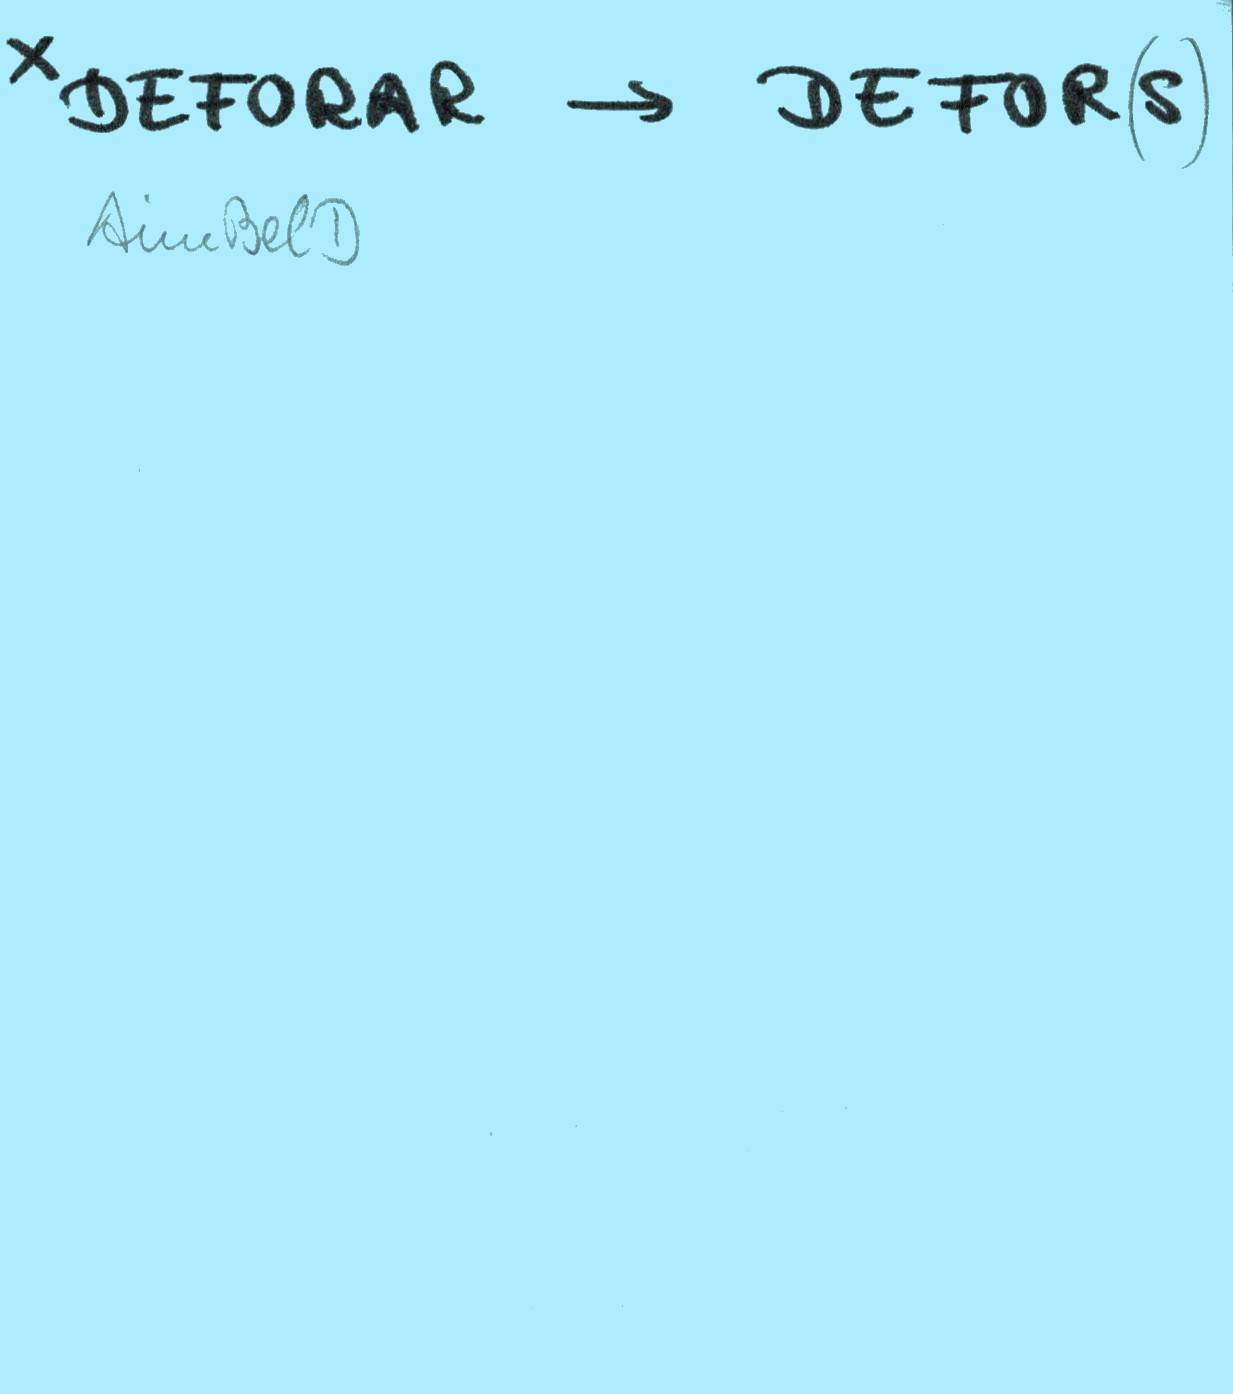 ×DEFORAR → DEFOR(S)
AimBelD